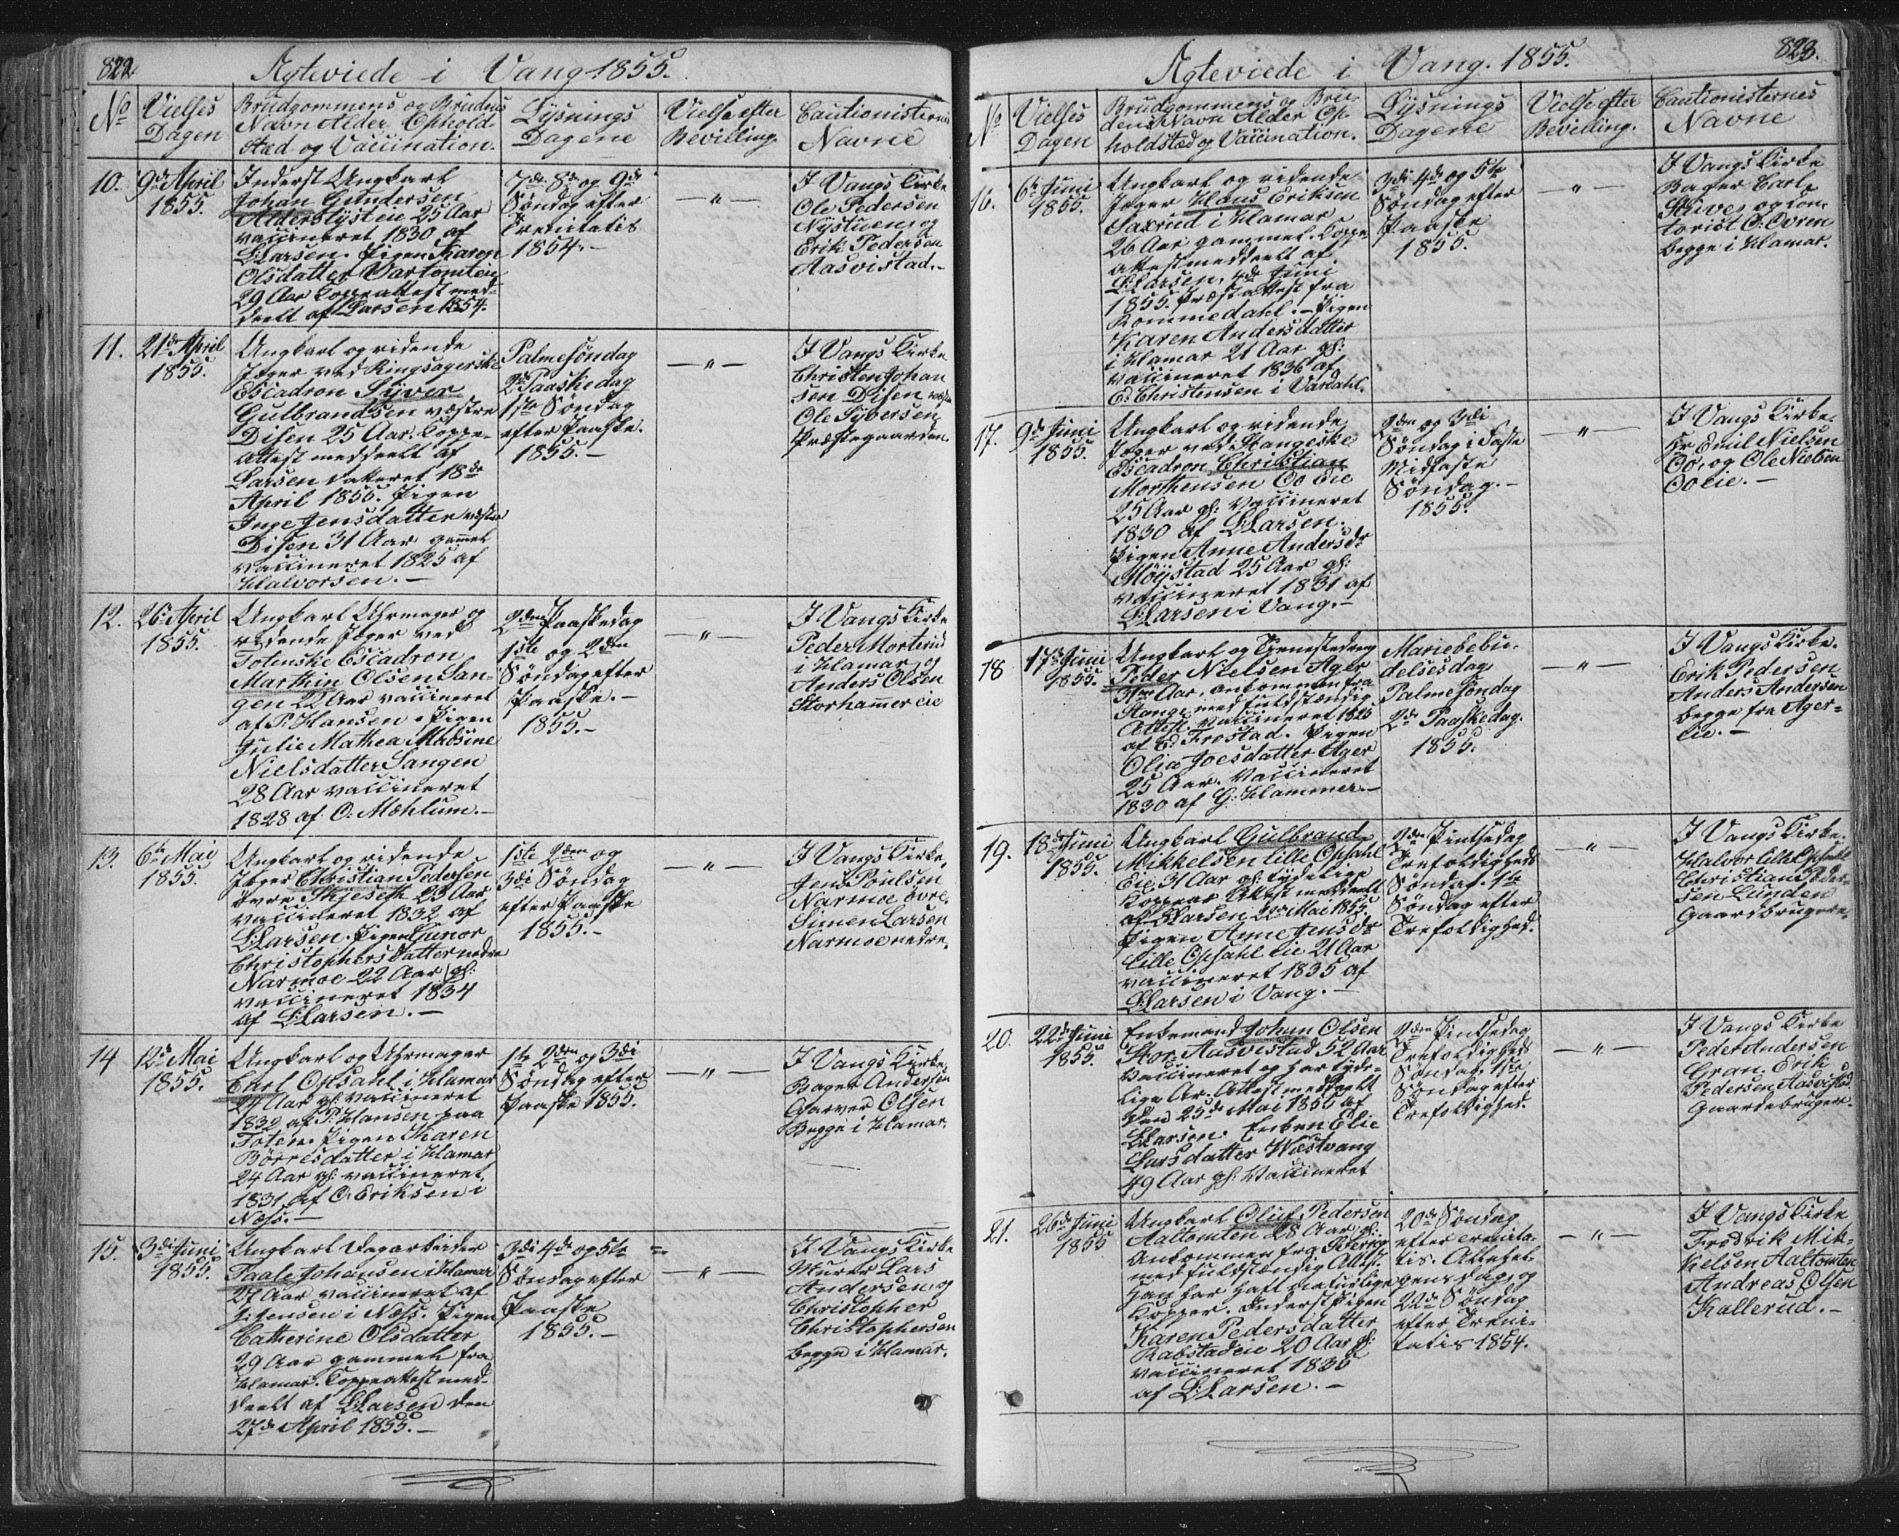 822
Ægteviede i Vang 1855.
No
Vielses Dagen
Brudgommens og Brudens
Navn Alder Ophold-
sted og Vaccination.
Lysnings
Dagene
Vielse efter
Bevilling
Cautionisternes
Navne
10.
9de April
1855.
Inderst Ungkarl
Johan Gundersen
Alderslyst eie 25 Aar
vaccineret 1830 af
L. Larsen. Pigen Karen
Olsdatter Vartomten
29 Aar Koppeattest med-
deelt af Larsen 1854.
7de 8de og 9de
Søndag efter
Trinitatis
1854.-
— " —
I Vangs Kirke
Ole Pedersen
Nystuen og
Erik Pedersen
Aasvistad.-
11.
21de April
1855.
Ungkarl og ridende
Jæger ved Ringsagerske
Escadron Syver
Gulbrandsen vestre
Disen 25 Aar. Koppe-
Attest meddeelt af
Larsen dateret 18de
April 1855. Pigen
Inge Jensdatter vestre
Disen 31 Aar gammel
vaccineret 1825 af
Halvorsen.—
Palmesøndag
2den Paaskedag
1ste Søndag
efter Paaske.
1855.—
— " —
I Vangs Kirke
Christen Johan
sen Disen
Ole Syversen
Præstegaarden.
12.
26de April
1855.
Ungkarl Uhrmager og
ridende Jæger ved
Totenske Escadron
Marthin Olsen San-
gen 22 Aar vaccineret
af P. Hansen. Pigen
Julie Mathea Madsine
Nielsdatter Sangen
28 Aar vaccineret
1828 af O. Mæhlum.—
2den Paaskedag
1ste og 2den
Søndag efter
Paaske.—
1855.—
— " —
I Vangs Kirke
Peder Morterud
i Hamar og
Anders Olsen
Storhamer eie
13.
6te Mai
1855.
Ungkarl og ridende
Jæger Christian Pedersen
øvre Skjeseth 23 Aar
vaccineret 1832 af
L. Larsen. Pigen Gunor
Christophersdatter nedre
Narmoe 22 Aar gl:
vaccineret 1834
af L. Larsen.—
1ste 2den og
3die Søndag
efter Paaske
1855.—
— " —
I Vangs Kirke,
Jens Poulsen
Narmoe øvre,
Simen Larsen
Narmoe nedre,
14
12de Mai
1855.
Ungkarl og Uhrmager
Carl Opsahl i Hamar
27 Aar gl: vaccineret
1832 af P. Hansen paa
Toten. Pigen Karen
Børresdatter i Hamar
24 Aar gl: vaccineret
1831 af O. Eriksen i
Næss.—
1ste 2den og 3die
Søndag efter
Paaske 1855.
— " —
I Vangs Kirke,
Bager Andersen
Garver Olsen
Begge i Hamar.
15.
3die Juni
1855.
Ungkarl Dagarbeider
Paale Johansen i Hamar
27 Aar vaccineret af
J. Jensen i Næss. Pigen
Cathrine Olsdatter
29 Aar gammel fra
Hamar. Koppeattest med-
deelt af L. Larsen den
27de April 1855.—
3die 4de og 5te
Søndag efter
Paaske
1855.—
— " —
I Vangs Kirke
Murer Lars
Andersen og
Christopher
Christophersen
begge i Hamar.
823.
Ægteviede i Vang. 1855.
No
Vielses
Dagen
Brudgommens og Bru-
dens Navn Alder Op-
holdsted og Vaccination.
Lysnings
Dagene
Vielse efter
Bevilling.
Cautionisternes
Navne
16.
6te Juni
1855.
Ungkarl og ridende
Jæger Hans Eriksen
Saxrud i Hamar
26 Aar gammel. Koppe-
attest meddeelt af
L. Larsen, 4de Juni
1855. Præsteattest fra
Rommedahl.— Pigen
Karen Andersdatter
i Hamar 21 Aar gl:
vaccineret 1836 af
E. Christensen i Vardahl.
3die 4de og 5te
Søndag efter
Paaske
1855.
— " —
I Vangs Kirke
Bager Carl
Stiver og Con-
torist O. Oveen
begge i Hamar.
17.
9de Juni
1855.
Ungkarl og ridende
Jæger ved Stangeske
Escadron Christian
Morthensen Bo Eie
25 Aar gl: vaccineret
1830 af L. Larsen.
Pigen Anne Andersdr
Møystad 25 Aar gl:
vaccineret 1831 af
L. Larsen i Vang.—
2den og 3die
Søndag i Faste
Midfaste
Søndag.—
1855.
— " —
I Vangs Kirke.
Emil Nielsen
Bo, og Ole Nielsen
Bo eie.—
18
17de Juni
1855.
Ungkarl og Tjenestedreng
Peder Nielsen Ager
Aar, ankommen fra
Stange med fuldstændig
Attest. vaccineret 1825
af E. Frostad. Pigen
Olia Joesdatter Ager
25 Aar. Vaccineret
1830 af G. Hammer.—
Mariebebu-
delsesdag
Palmesøndag
2den Paaskedag.
1855.
— " —
I Vangs Kirke.
Erik Pedersen
Anders Andersen
begge fra Ager-
eie.—
19.
18de Juni
1855.
Ungkarl Gulbrand
Mikkelsen lille Opsahl
Eie 31 Aar gl: tydelige
Kopper Attest meddeelt
af L. Larsen 2den Mai 1855
Pigen Anne Jensdr
Lille Opsahl eie 21 Aar
vaccineret 1835 af
L. Larsen i Vang.—
2den Pintsedag
Trefoldigheds
Søndag. 1ste
Søndag efter
Trefoldighed.
— " —
I Vangs Kirke.
Halvor lille Opsahl
Christian Peder-
sen Lunden
Gaardbrugere,
20.
22de Juni
1855
Enkemand Johan Olsen
Stor Aasvistad 52 Aar
vaccineret og har tyde-
lige Ar. Attest meddeelt
den 25de Mai 1855 af
L. Larsen. Enken Elie
Larsdatter Westvang
49 Aar gl: Vaccineret
2den Pintsedag
Trefoldigheds
Søndag 1ste
Søndag efter
Trefoldighed.
— " —
I Vangs Kirke
Peder Andersen
Gran. Erik
Pedersen Aasvistad
Gaardbruger.
21.
26de Juni
1855
Ungkarl Oluf Pedersen
Aaltomten 28 Aar gl:
Ankommen fra
med fuldstændig Attest.
han har haft naturlige
Kopper. Inderst Pigen
Karen Pedersdatter
Rabstad eie 20 Aar gl:
vaccineret 1835
af L. Larsen.—
20de Søndag
efter Trinita-
tis. Allehel-
gensdag og
22de Søndag
efter Trini-
tatis 1854.
— " —
I Vangs Kirke
Fredrik Mik-
kelsen Aaltomten
Andreas Olsen
Kallerud.—